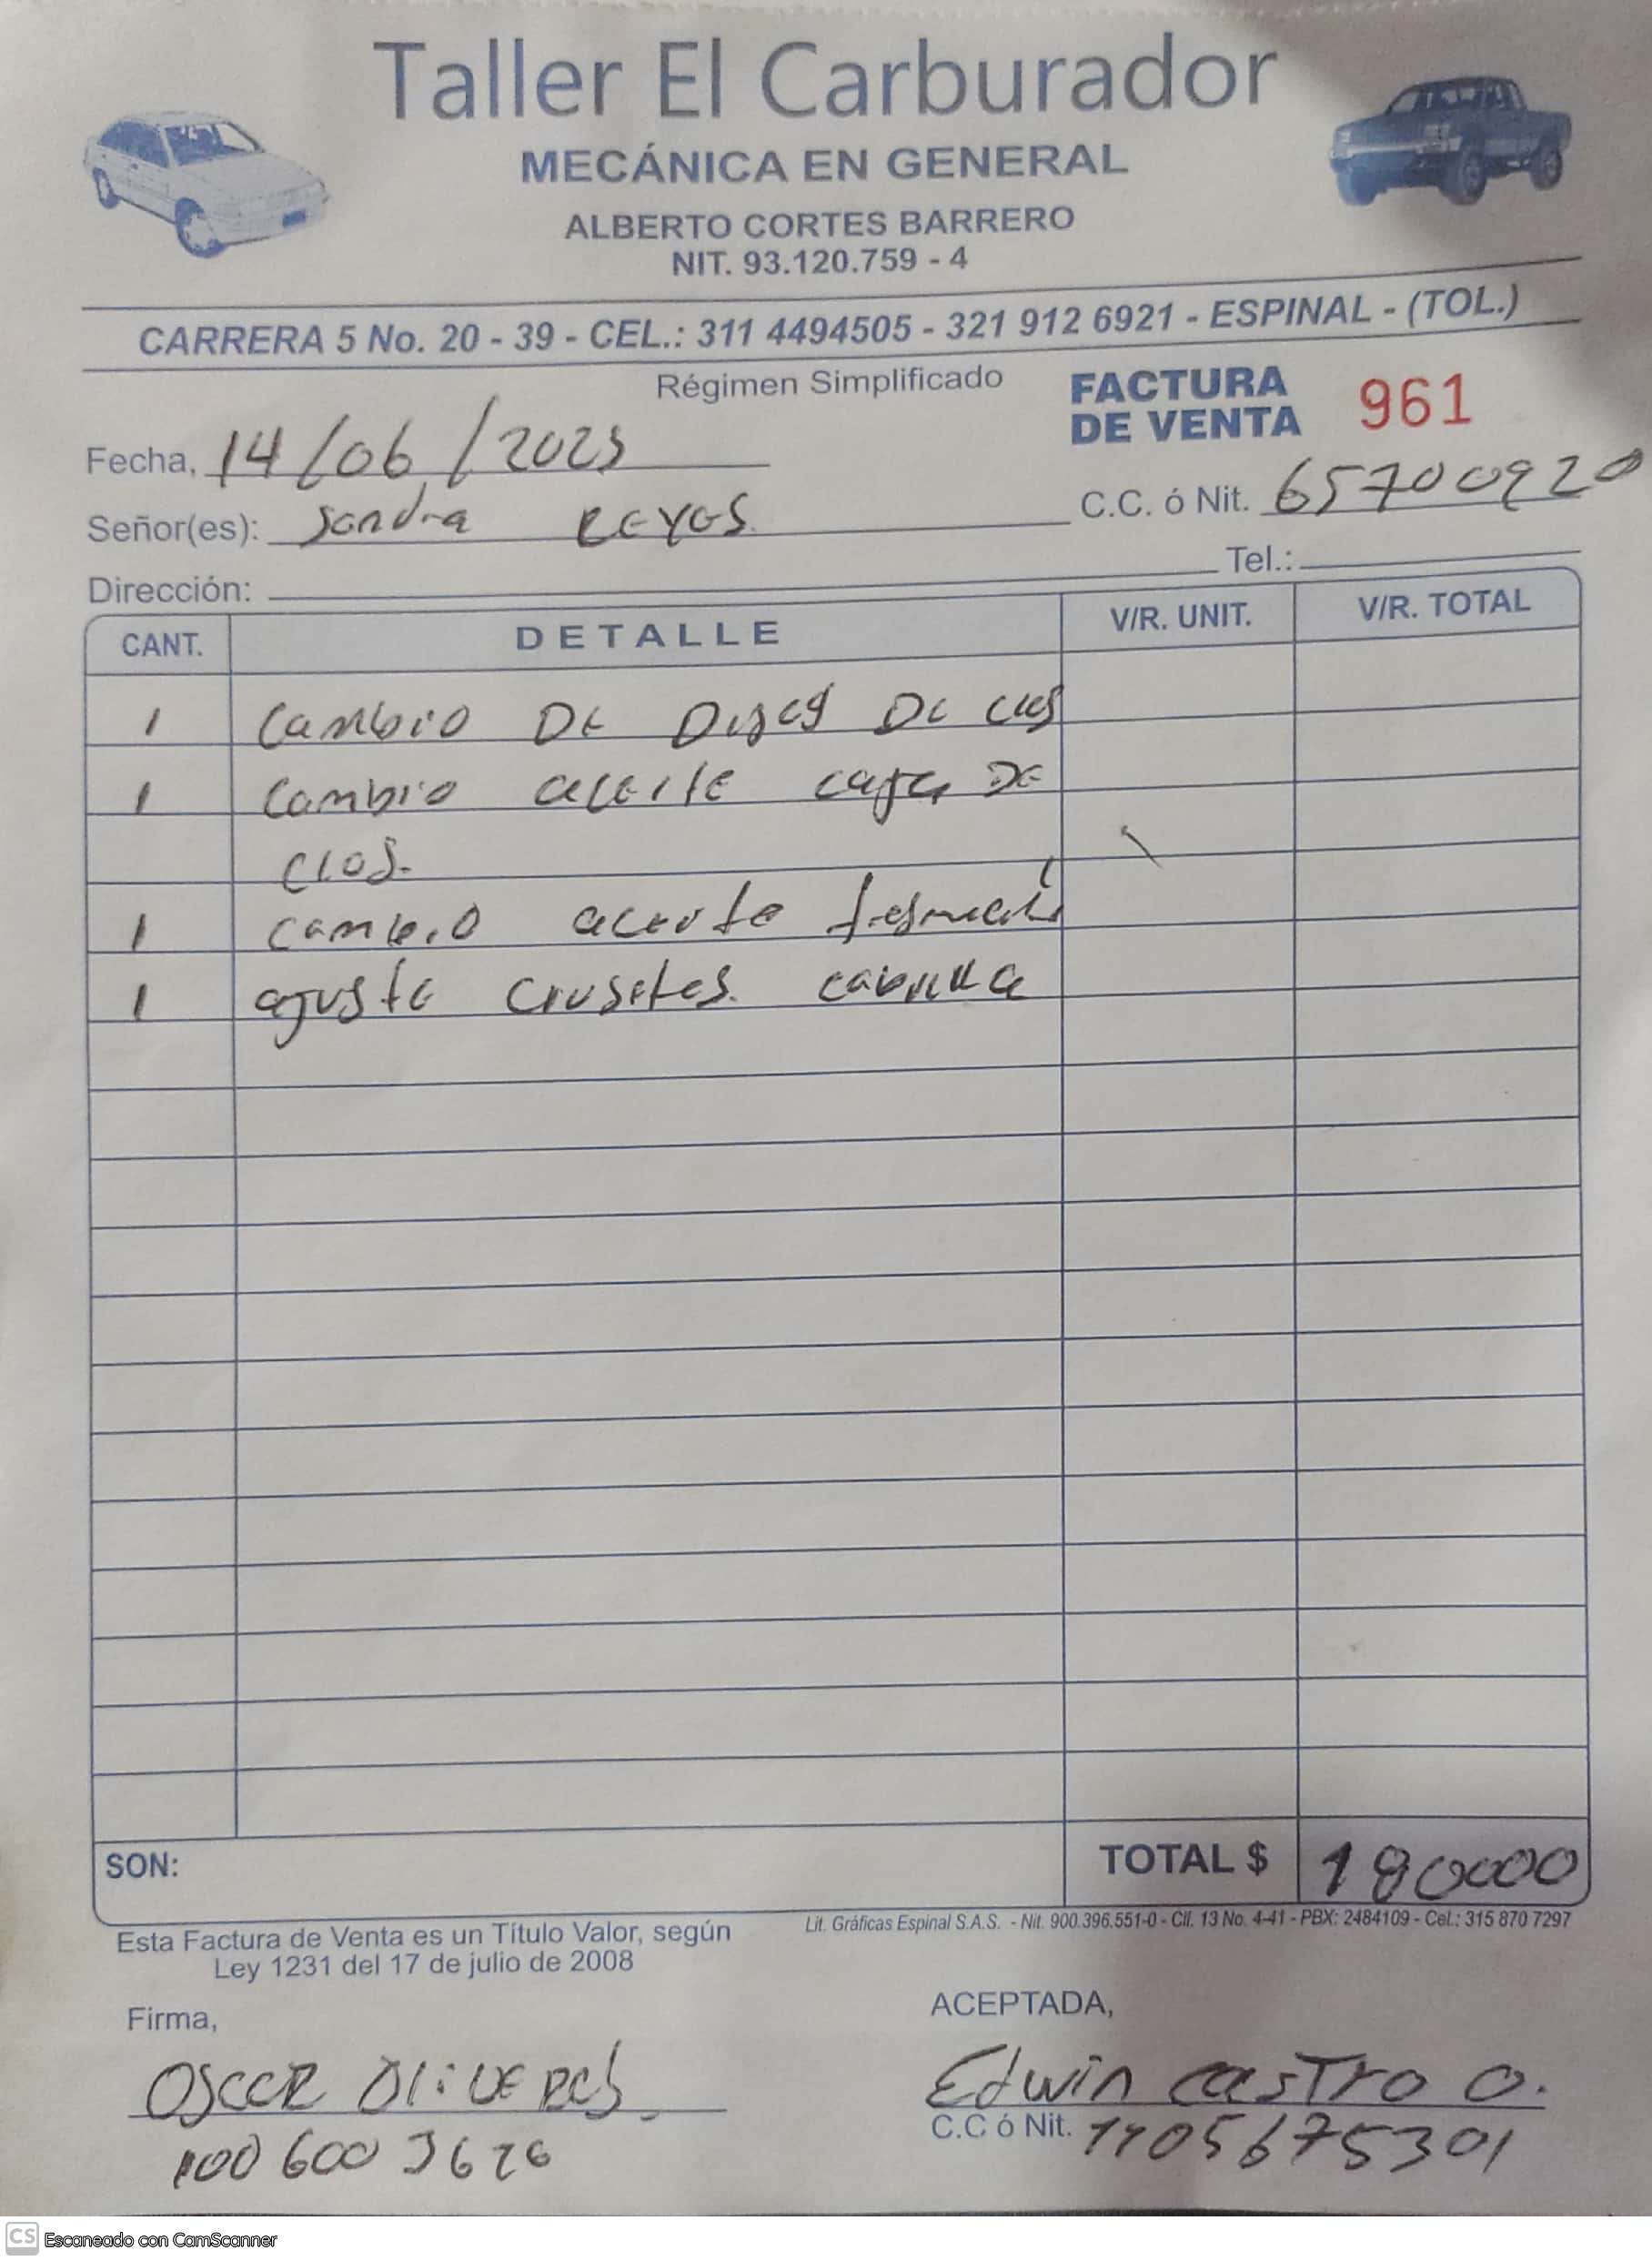 Taller El Carburador
MECÁNICA EN GENERAL
ALBERTO CORTES BARRERO
NIT. 93.120.759 - 4
CARRERA 5 No. 20 - 39 - CEL.: 311 4494505 - 321 912 6921 - ESPINAL - (TOL.)
Régimen Simplificado
FACTURA DE VENTA 961
Fecha, 14/06/2023
Señor(es): Sandra REYES C.C. ó Nit. 65700920
Dirección: Tel.:
CANT. DETALLE V/R. UNIT. V/R. TOTAL
1 Cambio DE DE
1 Cambio aceite caja DE
1 cambio aceite
1 ajuste crusetas.
SON: TOTAL $ 180000
Esta Factura de Venta es un Título Valor, según
Ley 1231 del 17 de julio de 2008
Lit. Gráficas Espinal S.A.S. - Nit. 900.396.551-0 - Cll. 13 No. 4-41 - PBX: 2484109 - Cel.: 315 870 7297
Firma, ACEPTADA,
OSCAR OLIVEROS. Edwin castro O.
C.C ó Nit. 1105675301
CS Escaneado con CamScanner